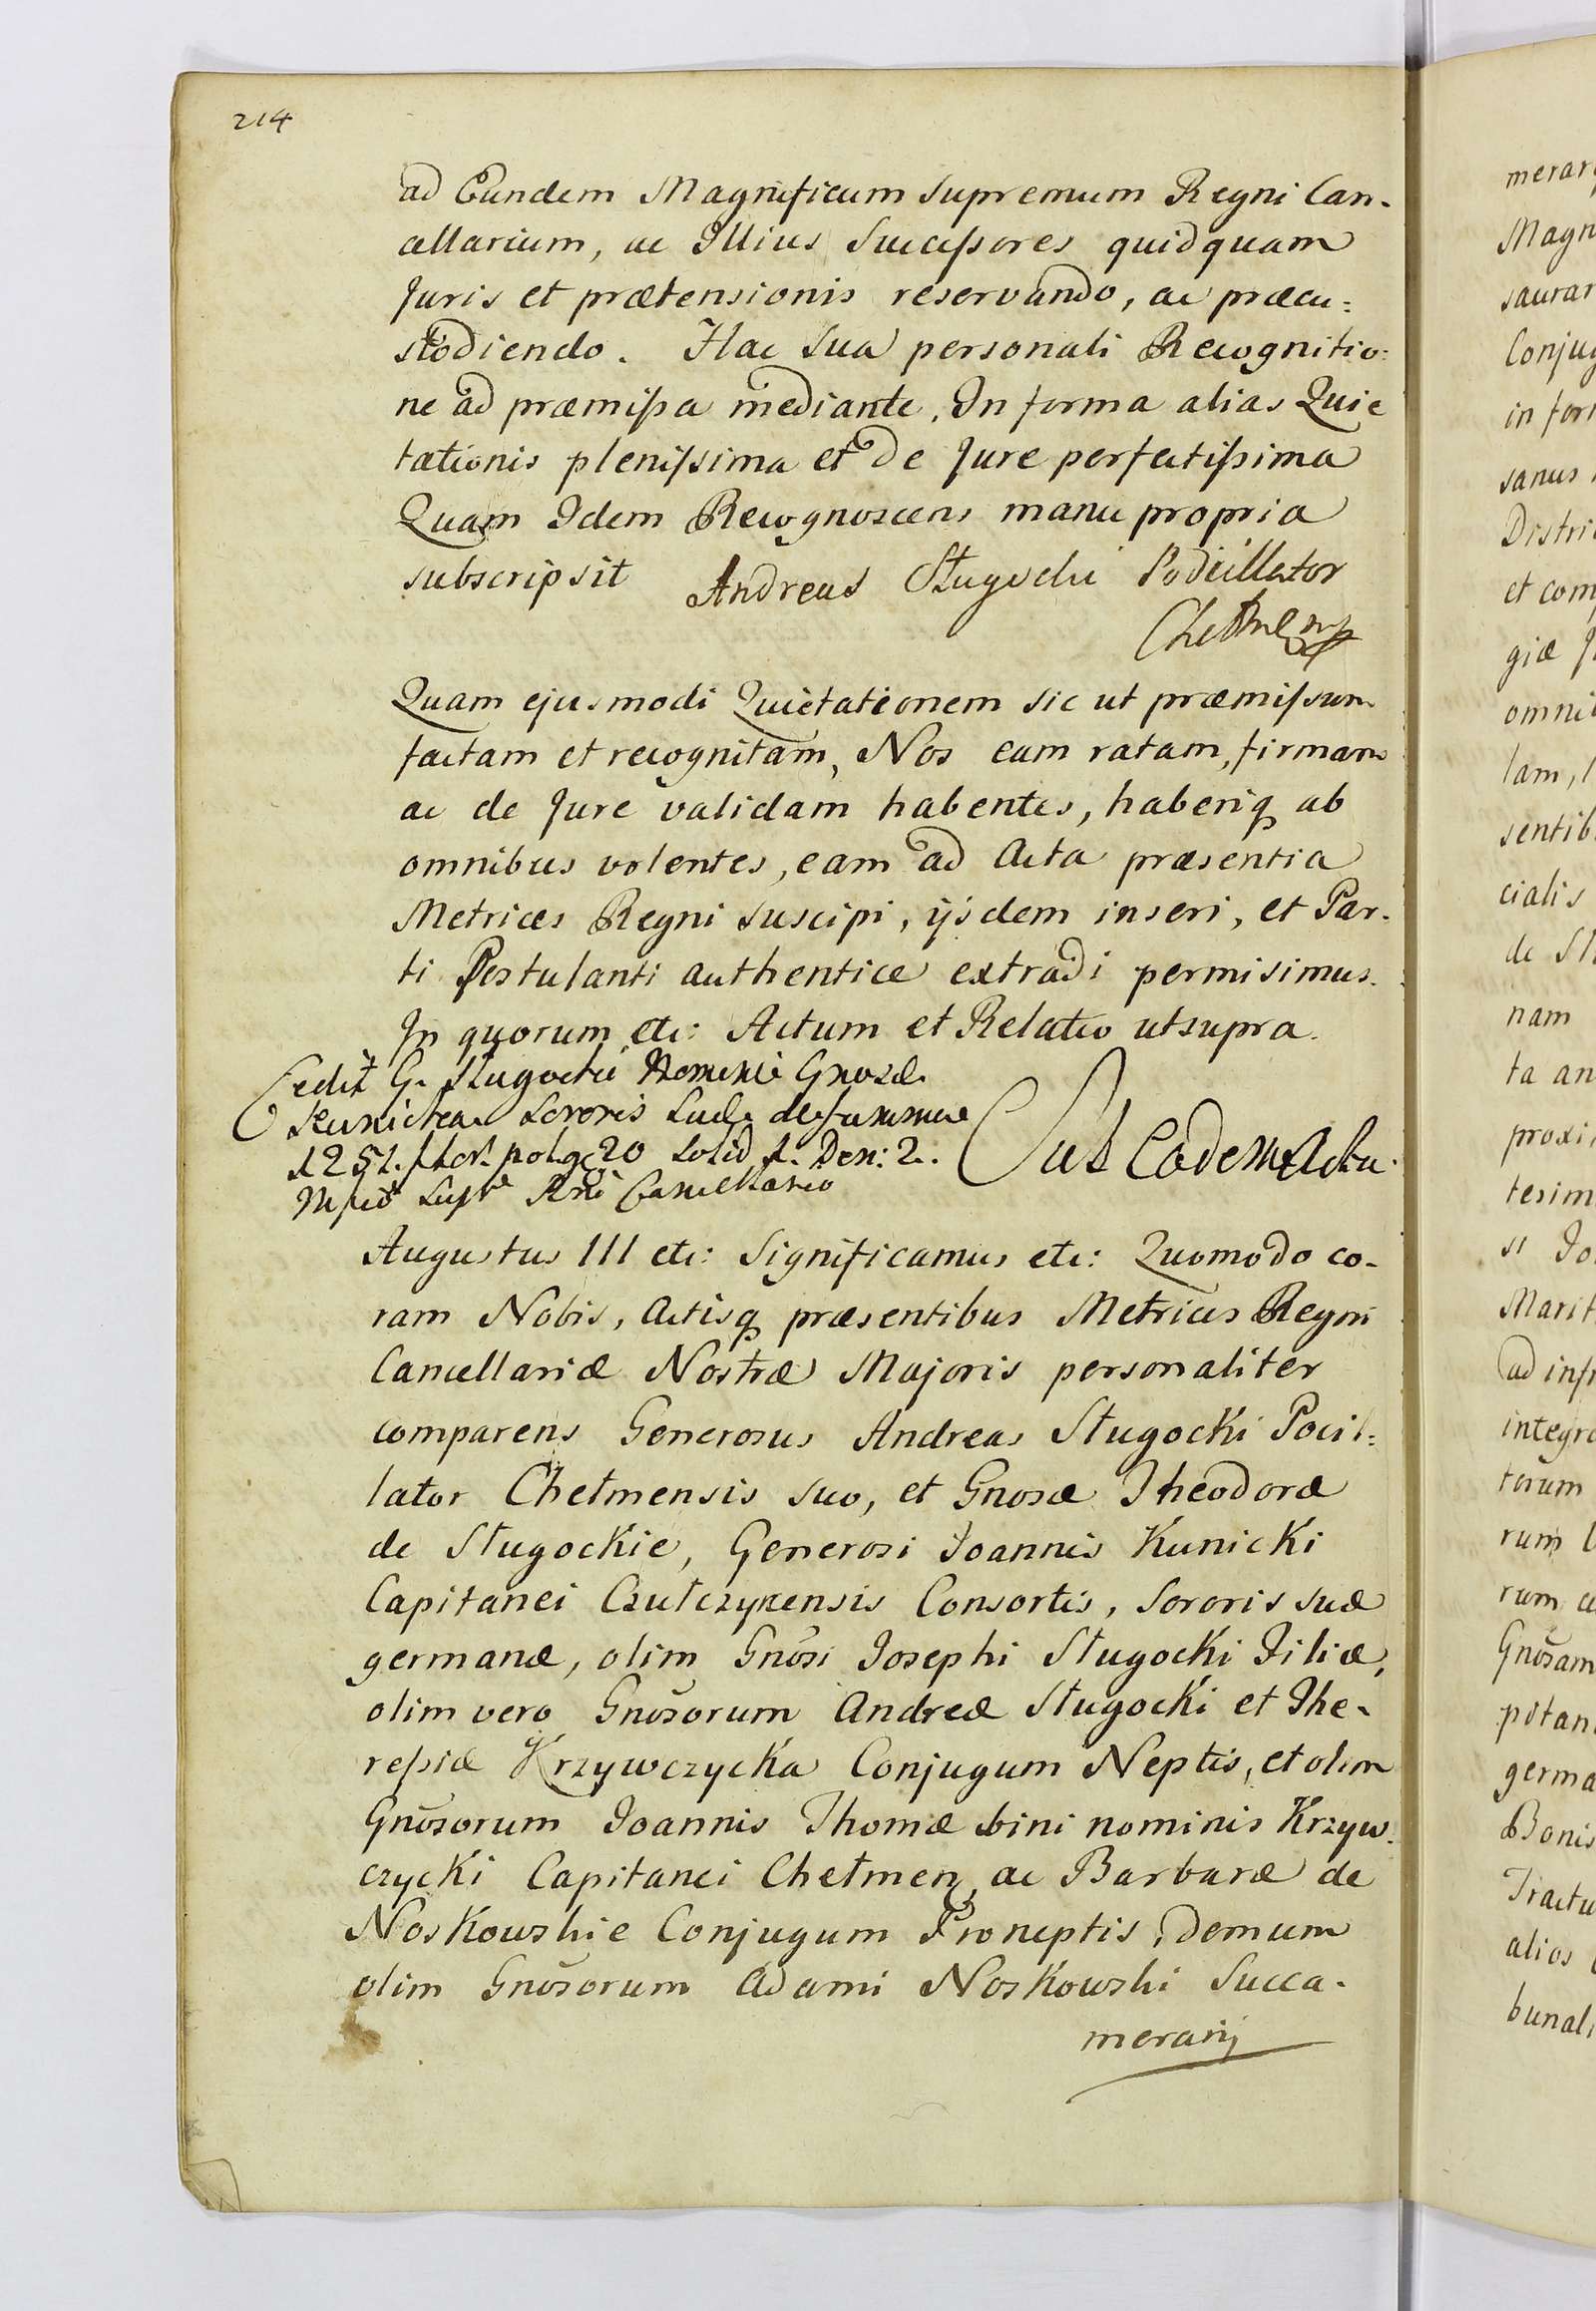 214
ad Eundem Magnificum Supremum Regni Can-
cellarium, ac Illius Successores quidquam
Juris et prætensionis reservando, ac præcu:
stodiendo. Hac Sua personali Recognitio:
ne ad præmissa mediante. In forma alias Quie
tationis plenissima et de Jure perfectissima
Quam Idem Recognoscens manu propria
subscripsit Andreas Sługocki Podczillator
Chełmen mp
Quam ejusmodi Quietationem sic ut præmissum
factam et recognitam, Nos eam ratam, firmam
ac de Jure validam habentes, haberiq ab
omnibus volentes, eam ad Acta præsentia
Metrices Regni suscipi, ijsdem inseri, et Par-
ti Postulanti authentice extradi permisimus.
In quorum etc: Actum et Relatio utsupra.
Cedit G. Sługocki Nomine Gnosæ
Kunickea Sororis Suæ de summa
1251. flor. pol. g. 20 Solid 1. Den: 2.
Mfico Supr Rni Cancellario
Sub Eodem Actu.
Augustus III etc: Significamus etc: Quomodo co-
ram Nobis, Actisq præsentibus Metrices Regni
Cancellariæ Nostræ Majoris personaliter
comparens Generosus Andreas Sługocki Pocil:
lator Chełmensis suo, et Gnosæ Theodoræ
de Sługockie, Generosi Joannis Kunicki
Capitanei Czułczycensis Consortis, Sororis suæ
germanæ, olim Gnosi Josephi Sługocki Filiæ,
olim vero Gnosorum Andreæ Sługocki et The-
ressiæ Krzywczycka Conjugum Neptis, et olim
Gnosorum Joannis Thomæ bini nominis Krzyw-
czycki Capitanei Chełmen, ac Barbaræ de
Noskowskie Conjugum Proneptis, demum
olim Gnosorum Adami Noskowski Succa-
merarij
Magn
Conjug
in for
sanus
Distri
et com
giæ
omni
lam,
sentib
cialis
de
nam
ta an
proxi
tesim
Marit
ad inf
integr
torum
rum
rum
Gnosam
pitan
germa
Bonis
Tractu
alios
bunali